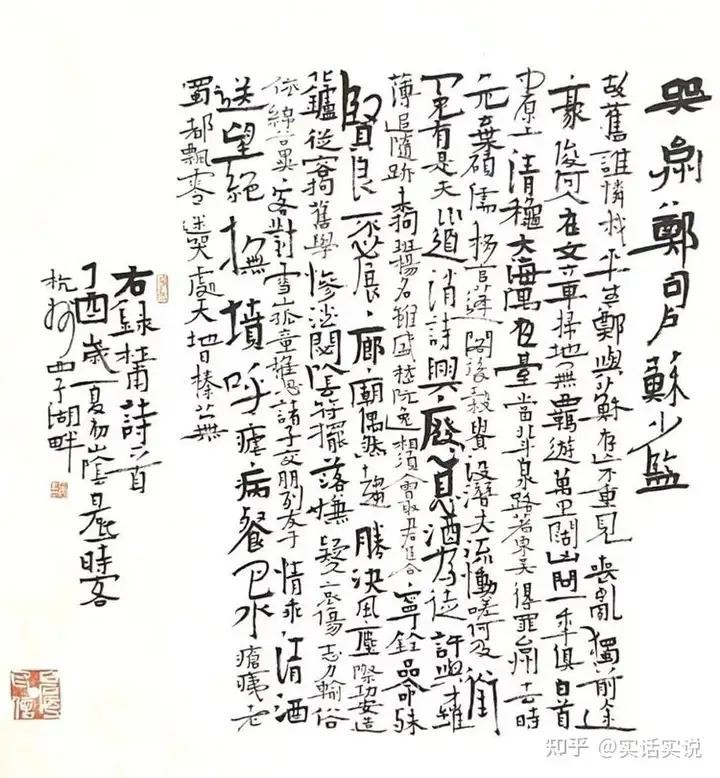 哭台州鄭司户蘇少監
故舊誰憐我平生鄭與蘇存亡不重見喪亂獨前途
豪俊何人在文章掃地無羈遊萬里闊凶問一年俱白首
中原上清秋大海隅夜臺當北斗泉路著東吴得罪台州去時
危棄碩儒移官蓬閣後穀貴没潛夫流慟嗟何及銜
冤有是夫道消詩興廢心息酒為徒許與才雖
薄追隨跡未拘班揚名甚盛嵇阮逸相須會取君臣合寧銓品命殊
賢良不必展廊廟偶然趨勝決風塵際功安造
化鑪從容拘舊學慘澹閟陰符擺落嫌疑久哀傷志力輸俗
依綿谷異客對雪山孤童稚思諸子交朋列友于情乖清酒
送望絶撫墳呼瘧病餐巴水瘡痍老
蜀都飄零迷哭處天地日榛蕪
右録杜甫詩一首
丁酉歲夏初山陰時客
杭州西子湖畔
知乎 @实话实说